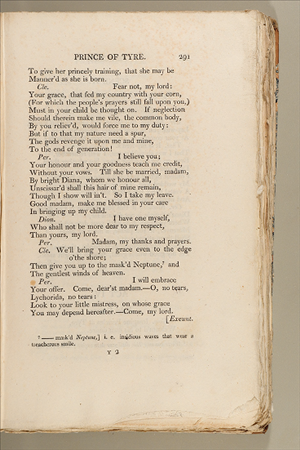 PRINCE OF TYRE. 291
To give her princely training, that she may be
Manner'd as she is born.
Cle. Fear not, my lord:
Your grace, that fed my country with your corn,
(For which the people's prayers still fall upon you,)
Must in your child be thought on. If neglection
Should therein make me vile, the common body,
By you reliev'd, would force me to my duty:
But if to that my nature need a spur,
The gods revenge it upon me and mine,
To the end of generation!
Per. I believe you;
Your honour and your goodness teach me credit,
Without your vows. Till she be married, madam,
By bright Diana, whom we honour all,
Unscissar'd shall this hair of mine remain,
Though I show will in't. So I take my leave.
Good madam, make me blessed in your care
In bringing up my child.
Dion. I have one myself,
Who shall not be more dear to my respect,
Than yours, my lord.
Per. Madam, my thanks and prayers.
Cle. We'll bring your grace even to the edge
o'the shore;
Then give you up to the mask'd Neptune,⁷ and
The gentlest winds of heaven.
Per. I will embrace
Your offer. Come, dear'st madam.—O, no tears,
Lychorida, no tears:
Look to your little mistress, on whose grace
You may depend hereafter.—Come, my lord.
[Exeunt.
⁷ —— mask'd Neptune,] i. e. insidious waves that wear a
treacherous smile.
Y 2